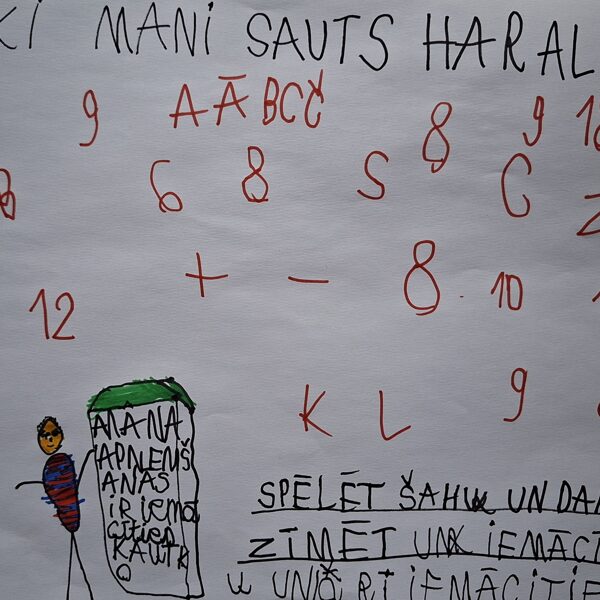 KI MANI SAUTS HARAL
9 A Ā BCČ 8 9
6 8 S C
+ - 8. 10
12
K L 9
MANA
APŅEMŠ
ANĀS
IR IEMĀ
CĪTIES
KAUT K
O
SPĒLĒT ŠAHU UN DA
ZĪMĒT UN IEMĀC
UN RĪ IEMĀCĪTIE